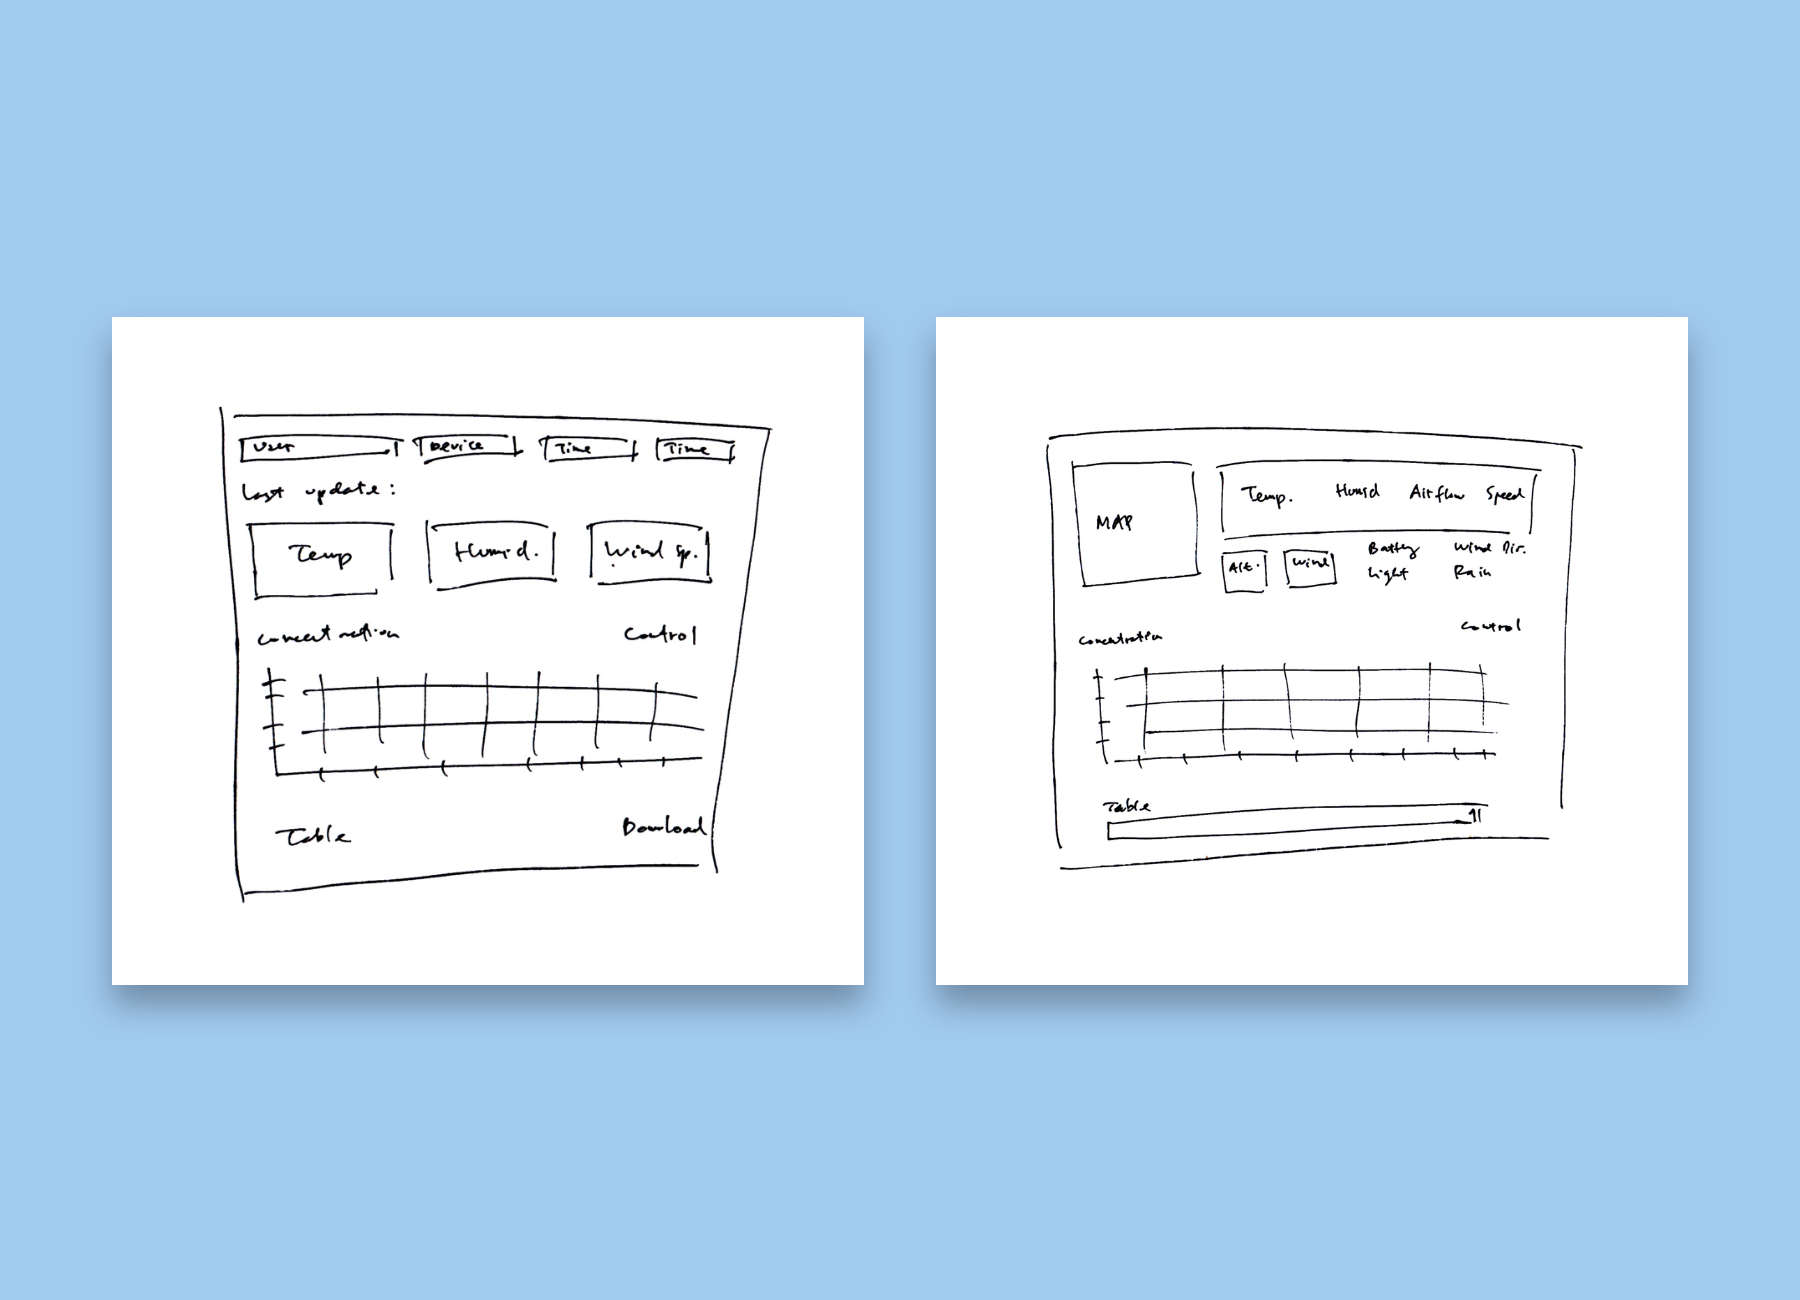 User Device Time Time
Last update:
Temp Humid. Wind sp.
Concentration Control
Table Download
MAP
Temp. Humid Airflow Speed
Alt. Wind
Battery Wind Dir.
Light Rain
Concentration Control
Table